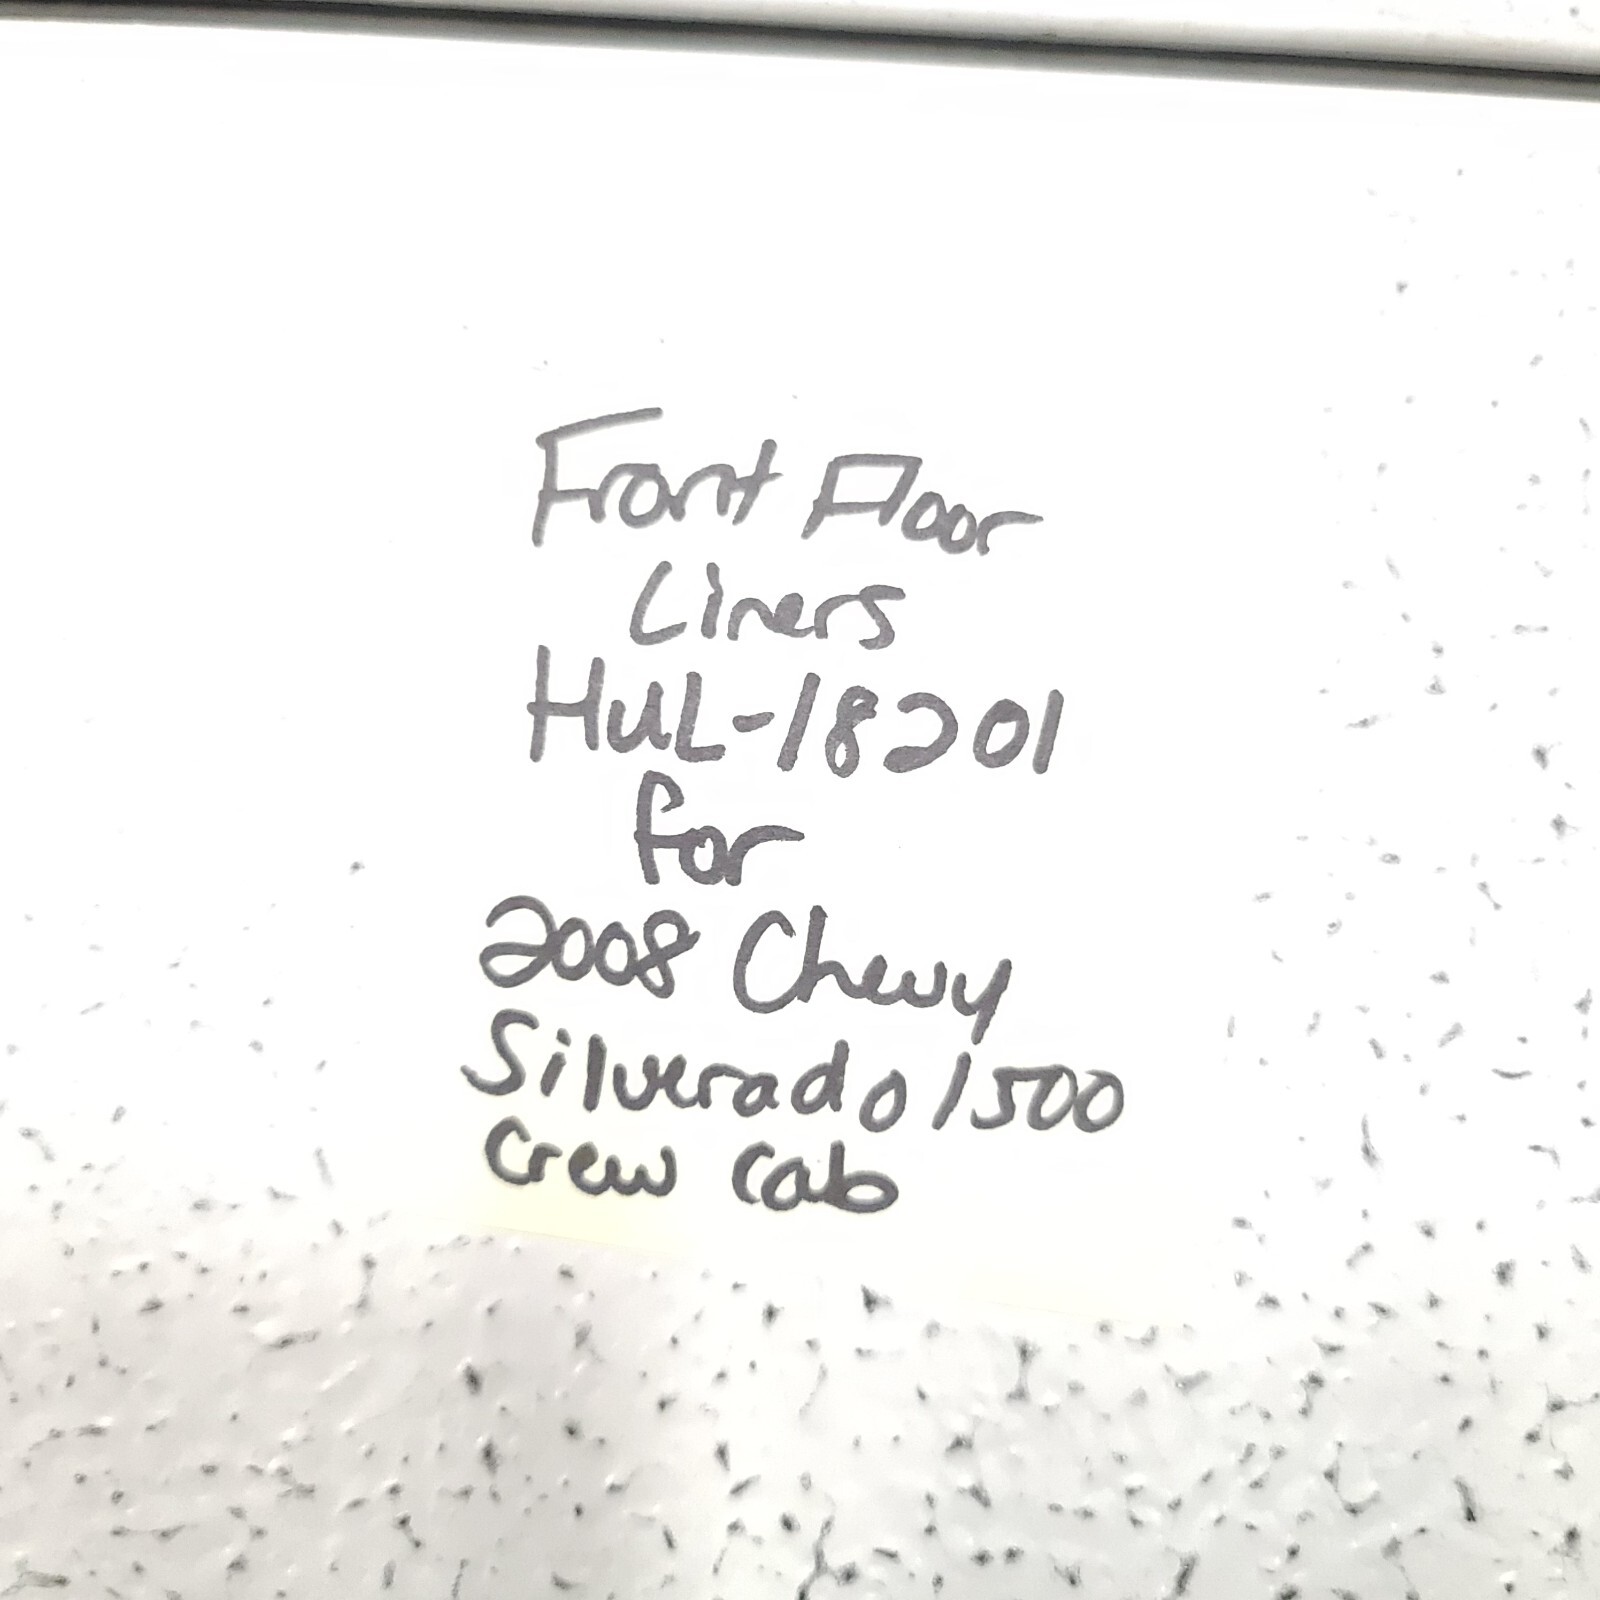 Front Floor
Liners
HUL-18201
for
2008 Chevy
Silverado 1500
Crew Cab